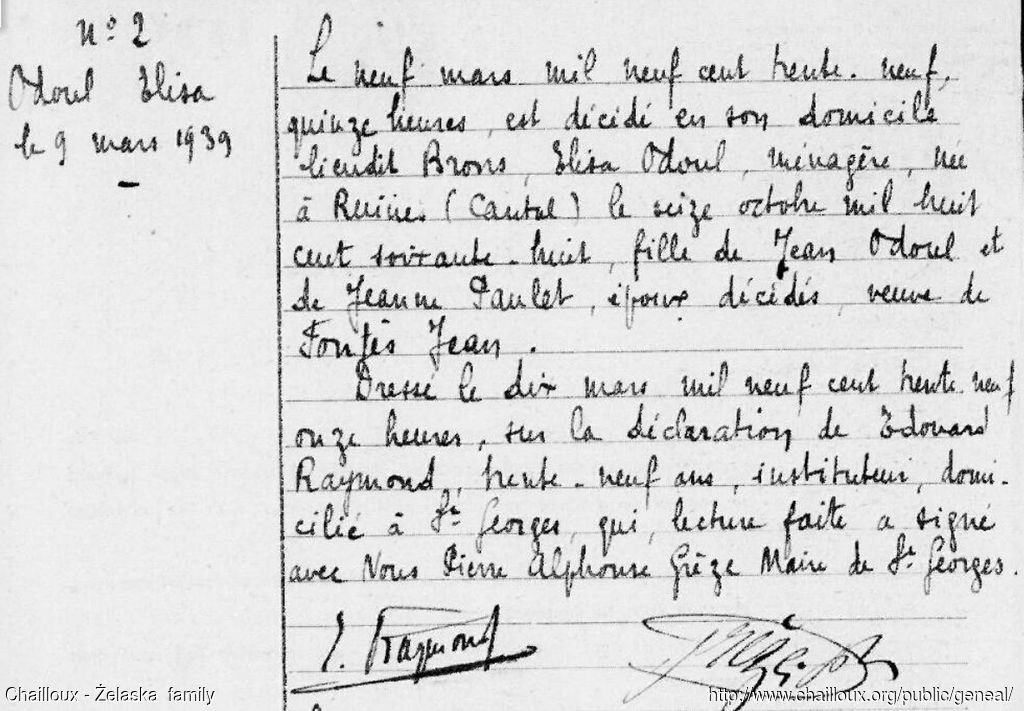 N° 2
Odoul Elisa
le 9 mars 1939
Le neuf mars mil neuf cent trente-neuf,
quinze heures, est décidé en son domicile
lieudit Brons, Elisa Odoul, ménagère, née
à (Cantal) le seize octobre mil huit
cent soixante-huit, fille de Jean Odoul et
de Jeanne Paulet, époux décédés, veuve de
Jean.
Dressé le dix mars mil neuf cent trente-neuf
onze heures, sur la déclaration de Edouard
Raymond, trente-neuf ans, instituteur, domi-
cilié à St Georges, qui, lecture faite a signé
avec Nous Pierre Alphonse Grèze Maire de St Georges.
E. Raymond
Chailloux - Żelaska family
http://www.chailloux.org/public/geneal/